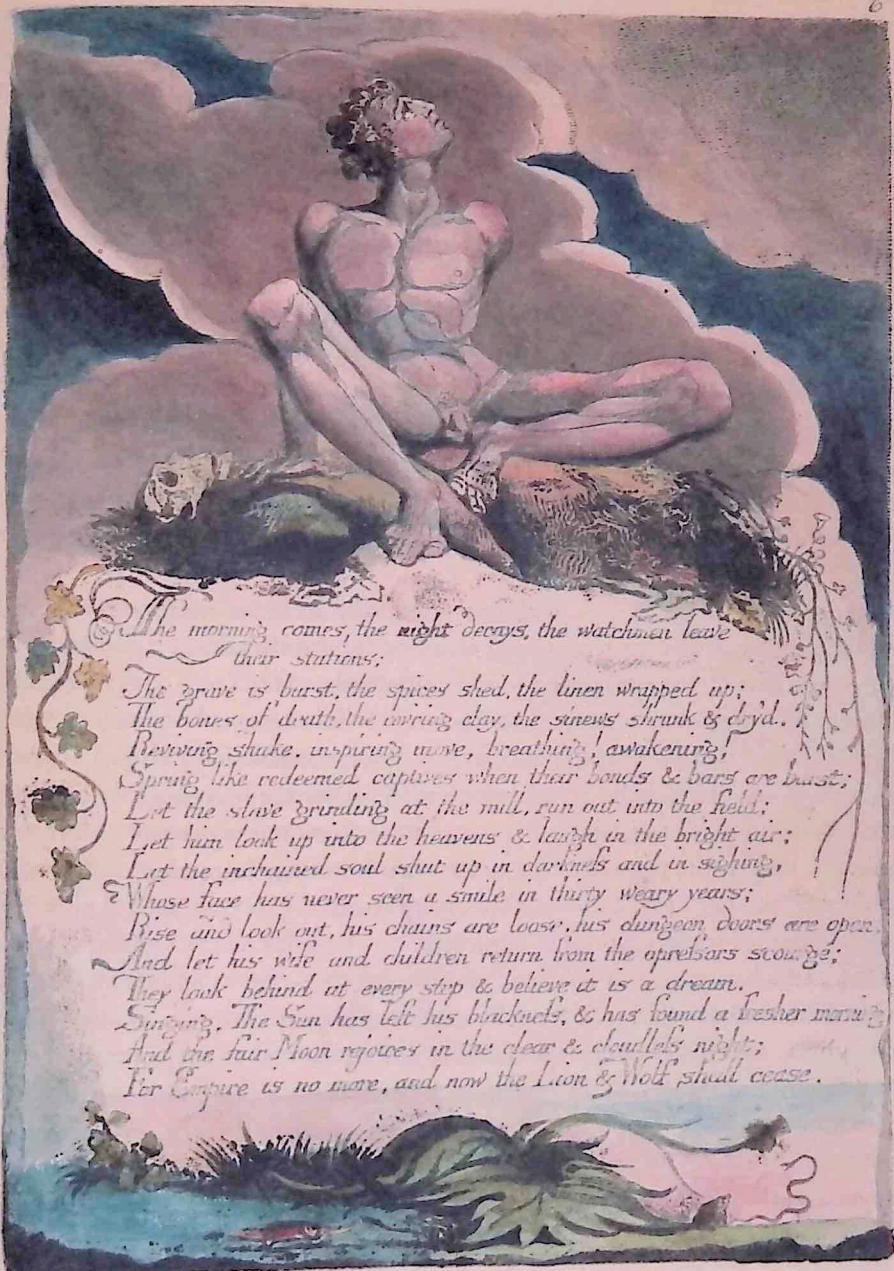 6
The morning comes, the night decays, the watchmen leave
their stations;
The grave is burst, the spices shed, the linen wrapped up;
The bones of death, the cov'ring clay, the sinews shrunk & dry'd.
Reviving shake, inspiring move, breathing! awakening!
Spring like redeemed captives when their bonds & bars are burst;
Let the slave grinding at the mill, run out into the field;
Let him look up into the heavens & laugh in the bright air;
Let the inchained soul shut up in darkness and in sighing,
Whose face has never seen a smile in thirty weary years;
Rise and look out, his chains are loose, his dungeon doors are open.
And let his wife and children return from the opressors scourge;
They look behind at every step & believe it is a dream.
Singing. The Sun has left his blackness, & has found a fresher morning
And the fair Moon rejoices in the clear & cloudless night;
For Empire is no more, and now the Lion & Wolf shall cease.